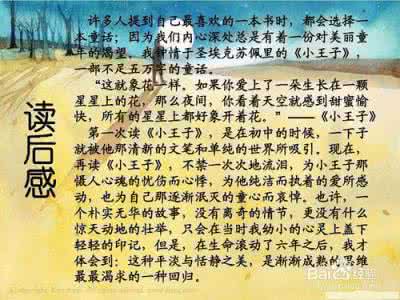 读后感
许多人提到自己最喜欢的一本书时，都会选择一
本童话；因为我们内心深处总是有着一份对美丽童
年的渴望。我钟情于圣埃克苏佩里的《小王子》，
一部不足五万字的童话。
“这就象花一样。如果你爱上了一朵生长在一颗
星星上的花，那么夜间，你看着天空就感到甜蜜愉
快，所有的星星上都好象开着花。”——《小王子》
第一次读《小王子》，是在初中的时候，一下子
就被他那清新的文笔和单纯的世界所吸引。现在，
再读《小王子》，不禁一次次地流泪，为小王子那
慑人心魂的忧伤而心悸，为他纯洁而执着的爱所感
动，也为自己那逐渐泯灭的童心而哀悼。也许，一
个朴实无华的故事，没有离奇的情节，更没有什么
惊天动地的壮举，只会在当时我幼小的心灵上盖下
轻轻的印记，但是，在生命滚动了六年之后，我才
体会到：这种平淡与恬静之美，是渐渐成熟的思维
最最渴求的一种回归。
Bai 百度经验